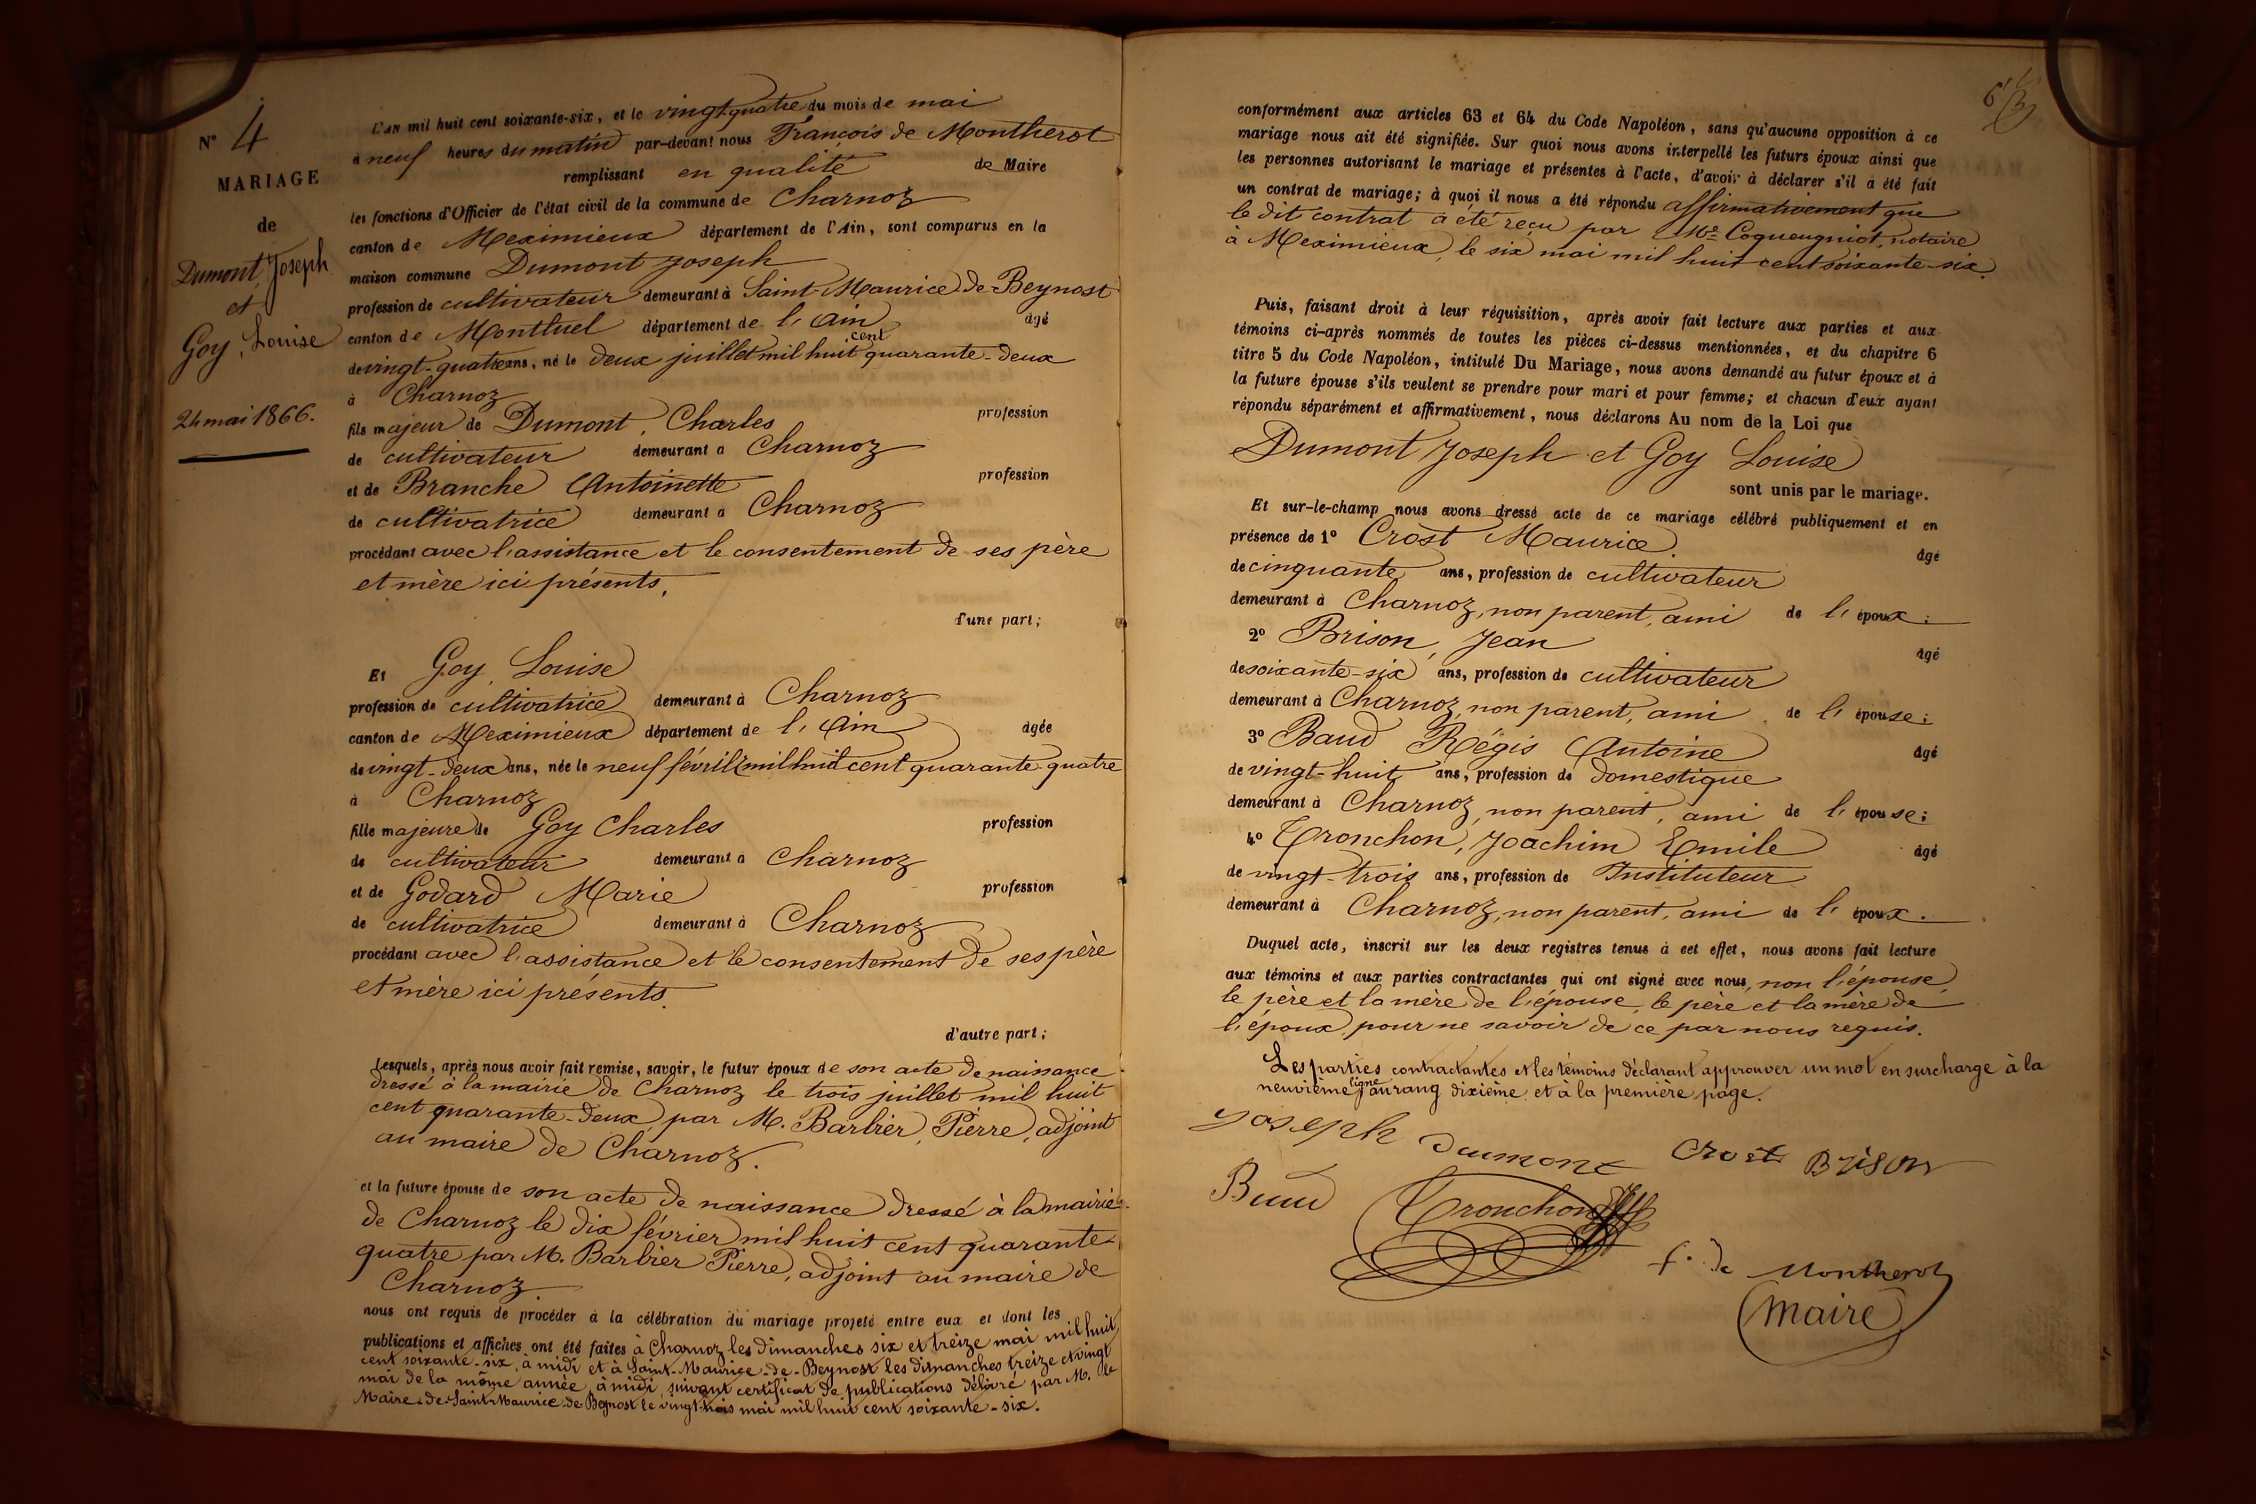 Nº 4
MARIAGE
de
Dumont, Joseph
et
Goy, Louise
24 mai 1866.
L'AN mil huit cent soixante-six, et le vingt-quatre du mois de mai
à neuf heures du matin par-devant nous François de Montherot
remplissant en qualité de Maire
les fonctions d'Officier de l'état civil de la commune de Charnoz
canton de Meximieux département de l'Ain, sont comparus en la
maison commune Dumont Joseph
profession de cultivateur demeurant à Saint-Maurice-de-Beynost
canton de Montluel département de l'Ain âgé
de vingt-quatre ans, né le deux juillet mil huit cent quarante-deux
à Charnoz
fils majeur de Dumont, Charles profession
de cultivateur demeurant à Charnoz
et de Branche Antoinette profession
de cultivatrice demeurant à Charnoz
procédant avec l'assistance et le consentement de ses père
et mère ici présents,
d'une part;
Et Goy, Louise
profession de cultivatrice demeurant à Charnoz
canton de Meximieux département de l'Ain agée
de vingt-deux ans, née le neuf février mil huit cent quarante-quatre
à Charnoz
fille majeure de Goy Charles profession
de cultivateur demeurant à Charnoz
et de Godard Marie profession
de cultivatrice demeurant à Charnoz
procédant avec l'assistance et le consentement de ses père
et mère ici présents.
d'autre part;
Lesquels, après nous avoir fait remise, savoir, le futur époux de son acte de naissance
dressé à la mairie de Charnoz le trois juillet mil huit
cent quarante-deux, par M. Barbier, Pierre, adjoint
au maire de Charnoz.
et la future épouse de son acte de naissance dressé à la mairie
de Charnoz le dix février mil huit cent quarante-
quatre par M. Barbier Pierre, adjoint au maire de
Charnoz.
nous ont requis de procéder à la célébration du mariage projeté entre eux et dont les
publications et affiches ont été faites à Charnoz les dimanches six et treize mai mil huit
cent soixante-six, à midi et à Saint-Maurice-de-Beynost les dimanches treize et vingt
mai de la même année, à midi, suivant certificat de publications délivré par M. le
Maire de Saint-Maurice-de-Beynost le vingt-trois mai mil huit cent soixante-six.
conformément aux articles 63 et 64 du Code Napoléon, sans qu'aucune opposition à ce
mariage nous ait été signifiée. Sur quoi nous avons interpellé les futurs époux ainsi que
les personnes autorisant le mariage et présentes à l'acte, d'avoir à déclarer s'il a été fait
un contrat de mariage; à quoi il nous a été répondu affirmativement que
le dit contrat a été reçu par Me Coqueugniot, notaire
à Meximieux, le six mai mil huit cent soixante-six.
Puis, faisant droit à leur réquisition, après avoir fait lecture aux parties et aux
témoins ci-après nommés de toutes les pièces ci-dessus mentionnées, et du chapitre 6
titre 5 du Code Napoléon, intitulé Du Mariage, nous avons demandé au futur époux et à
la future épouse s'ils veulent se prendre pour mari et pour femme; et chacun d'eux ayant
répondu séparément et affirmativement, nous déclarons Au nom de la Loi que
Dumont Joseph et Goy Louise
sont unis par le mariage.
Et sur-le-champ nous avons dressé acte de ce mariage célébré publiquement et en
présence de 1º Crost Maurice. âgé
de cinquante ans, profession de cultivateur
demeurant à Charnoz, non parent, ami de l'époux;
2º Brison, Jean âgé
de soixante-six ans, profession de cultivateur
demeurant à Charnoz, non parent, ami de l'épouse;
3º Baud Régis Antoine âgé
de vingt-huit ans, profession de domestique
demeurant à Charnoz, non parent, ami de l'épouse;
4º Tronchon, Joachim Emile âgé
de vingt-trois ans, profession de Instituteur
demeurant à Charnoz, non parent, ami de l'époux.
Duquel acte, inscrit sur les deux registres tenus à cet effet, nous avons fait lecture
aux témoins et aux parties contractantes qui ont signé avec nous, non l'épouse,
le père et la mère de l'épouse, le père et la mère de
l'époux, pour ne savoir de ce par nous requis.
Les parties contractantes et les témoins déclarant approuver un mot en surcharge à la
neuvième ligne au rang dixième, et à la première page.
Joseph Dumont Crost Brison
Baud Tronchon
f. de Montherot
Maire